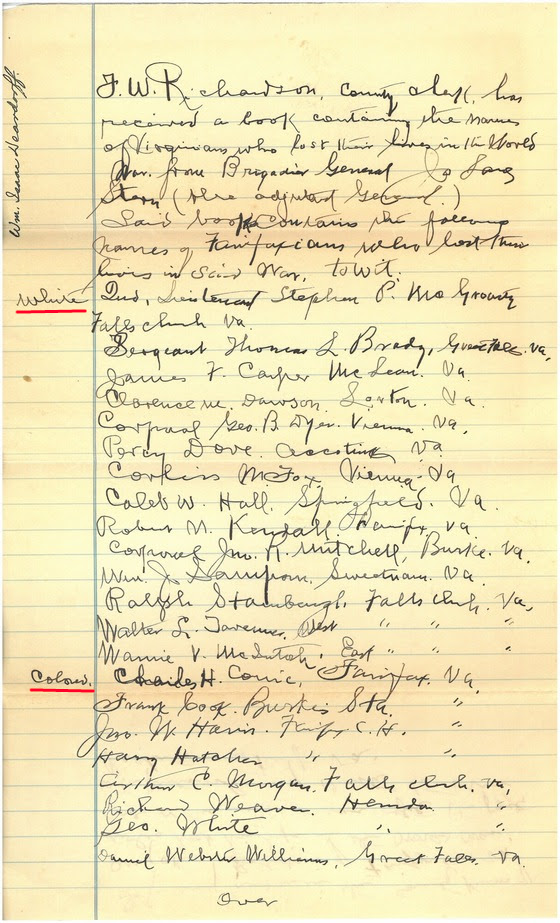 Wm. Isaac Deardorff.
F. W. Richardson, County clerk, has
received a book containing the names
of Virginians who lost their lives in the World
War. from Brigadier General Jo Lane
Stern (the adjutant General.)
Said book contains the following
names of Fairfaxians who lost their
lives in said War, to wit.
White 2nd, Lieutenant Stephen P. McGroarty
Falls church Va.
Sergeant Thomas L. Brady, Great Falls. Va,
James F. Casper McLean. Va.
Clarence M. Dawson. Lorton. Va.
Corporal Geo. B. Dyer. Vienna. Va,
Percy Dove. Accotink Va.
Corliss M. Fox, Vienna. Va
Caleb W. Hall. Springfield. Va.
Robert N. Kendall. Fairfx, Va.
Corporal Jno. R. Mitchell, Burke. Va.
Wm. J. Sampson, Sweetnam. Va.
Ralph Stambaugh, Falls church. Va,
Walter L. Tavenner, West " " "
Wannie V. McIntosh, East " " "
Colored. Charles H. Comic, Fairfax. Va.
Frank Cook. Burkes Sta. "
Jno. W. Harris. Fairfx C. H. "
Harry Hatcher " "
Arthur C. Morgan. Falls church. Va,
Richard Weaver. Herndon "
Geo. White " "
Daniel Webster Williams, Great Falls. Va.
Over